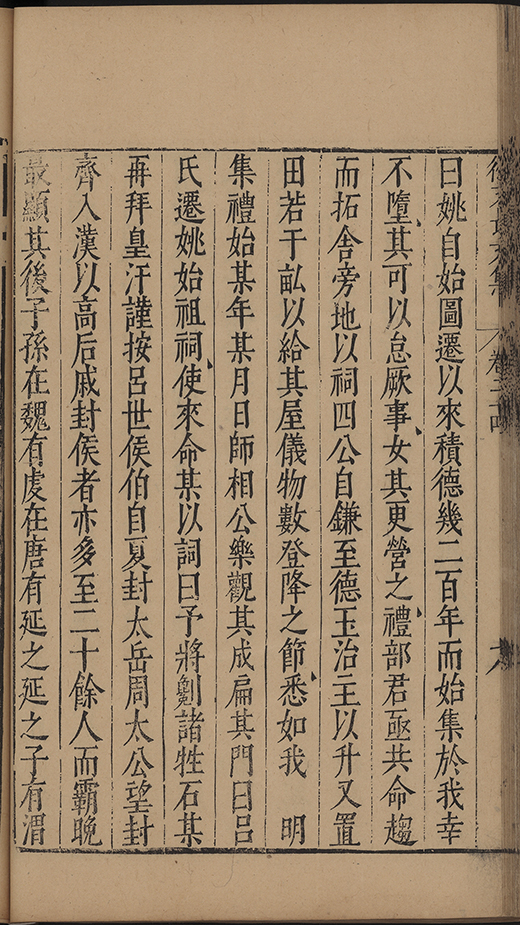 徐文長文集 卷二十四 八
曰姚自始圖遷以來積德幾二百年而始集於我幸
不墮其可以怠厥事女其更營之禮部君亟共命趨
而拓舍旁地以祠四公自鎌至德玉治主以升又置
田若干畆以給其屋儀物數登降之節悉如我 明
集禮始某年某月日師相公樂觀其成扁其門曰呂
氏遷姚始祖祠使來命某以詞曰予將劖諸牲石某
再拜皇汗謹按呂世侯伯自夏封太岳周太公望封
齊入漢以高后戚封侯者亦多至二十餘人而霸晚
最顯其後子孫在魏有虔在唐有延之延之子有渭